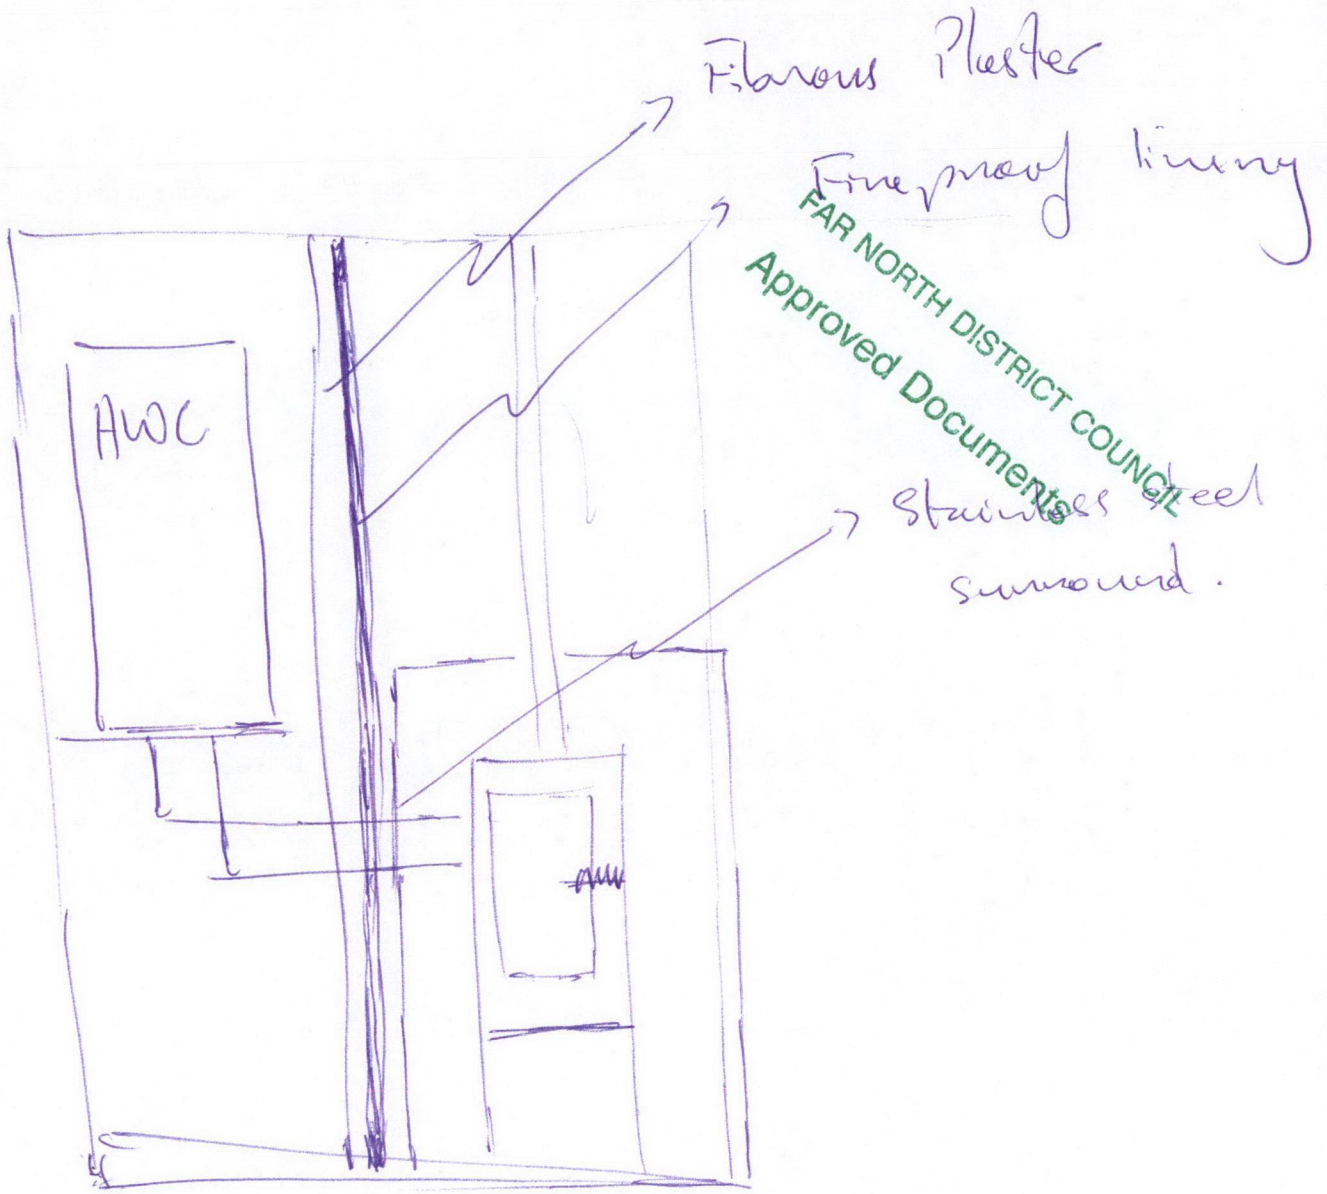 Fibrous Plaster
Fireproof lining
FAR NORTH DISTRICT COUNCIL
Approved Documents
AWC
Stainless steel
surround.